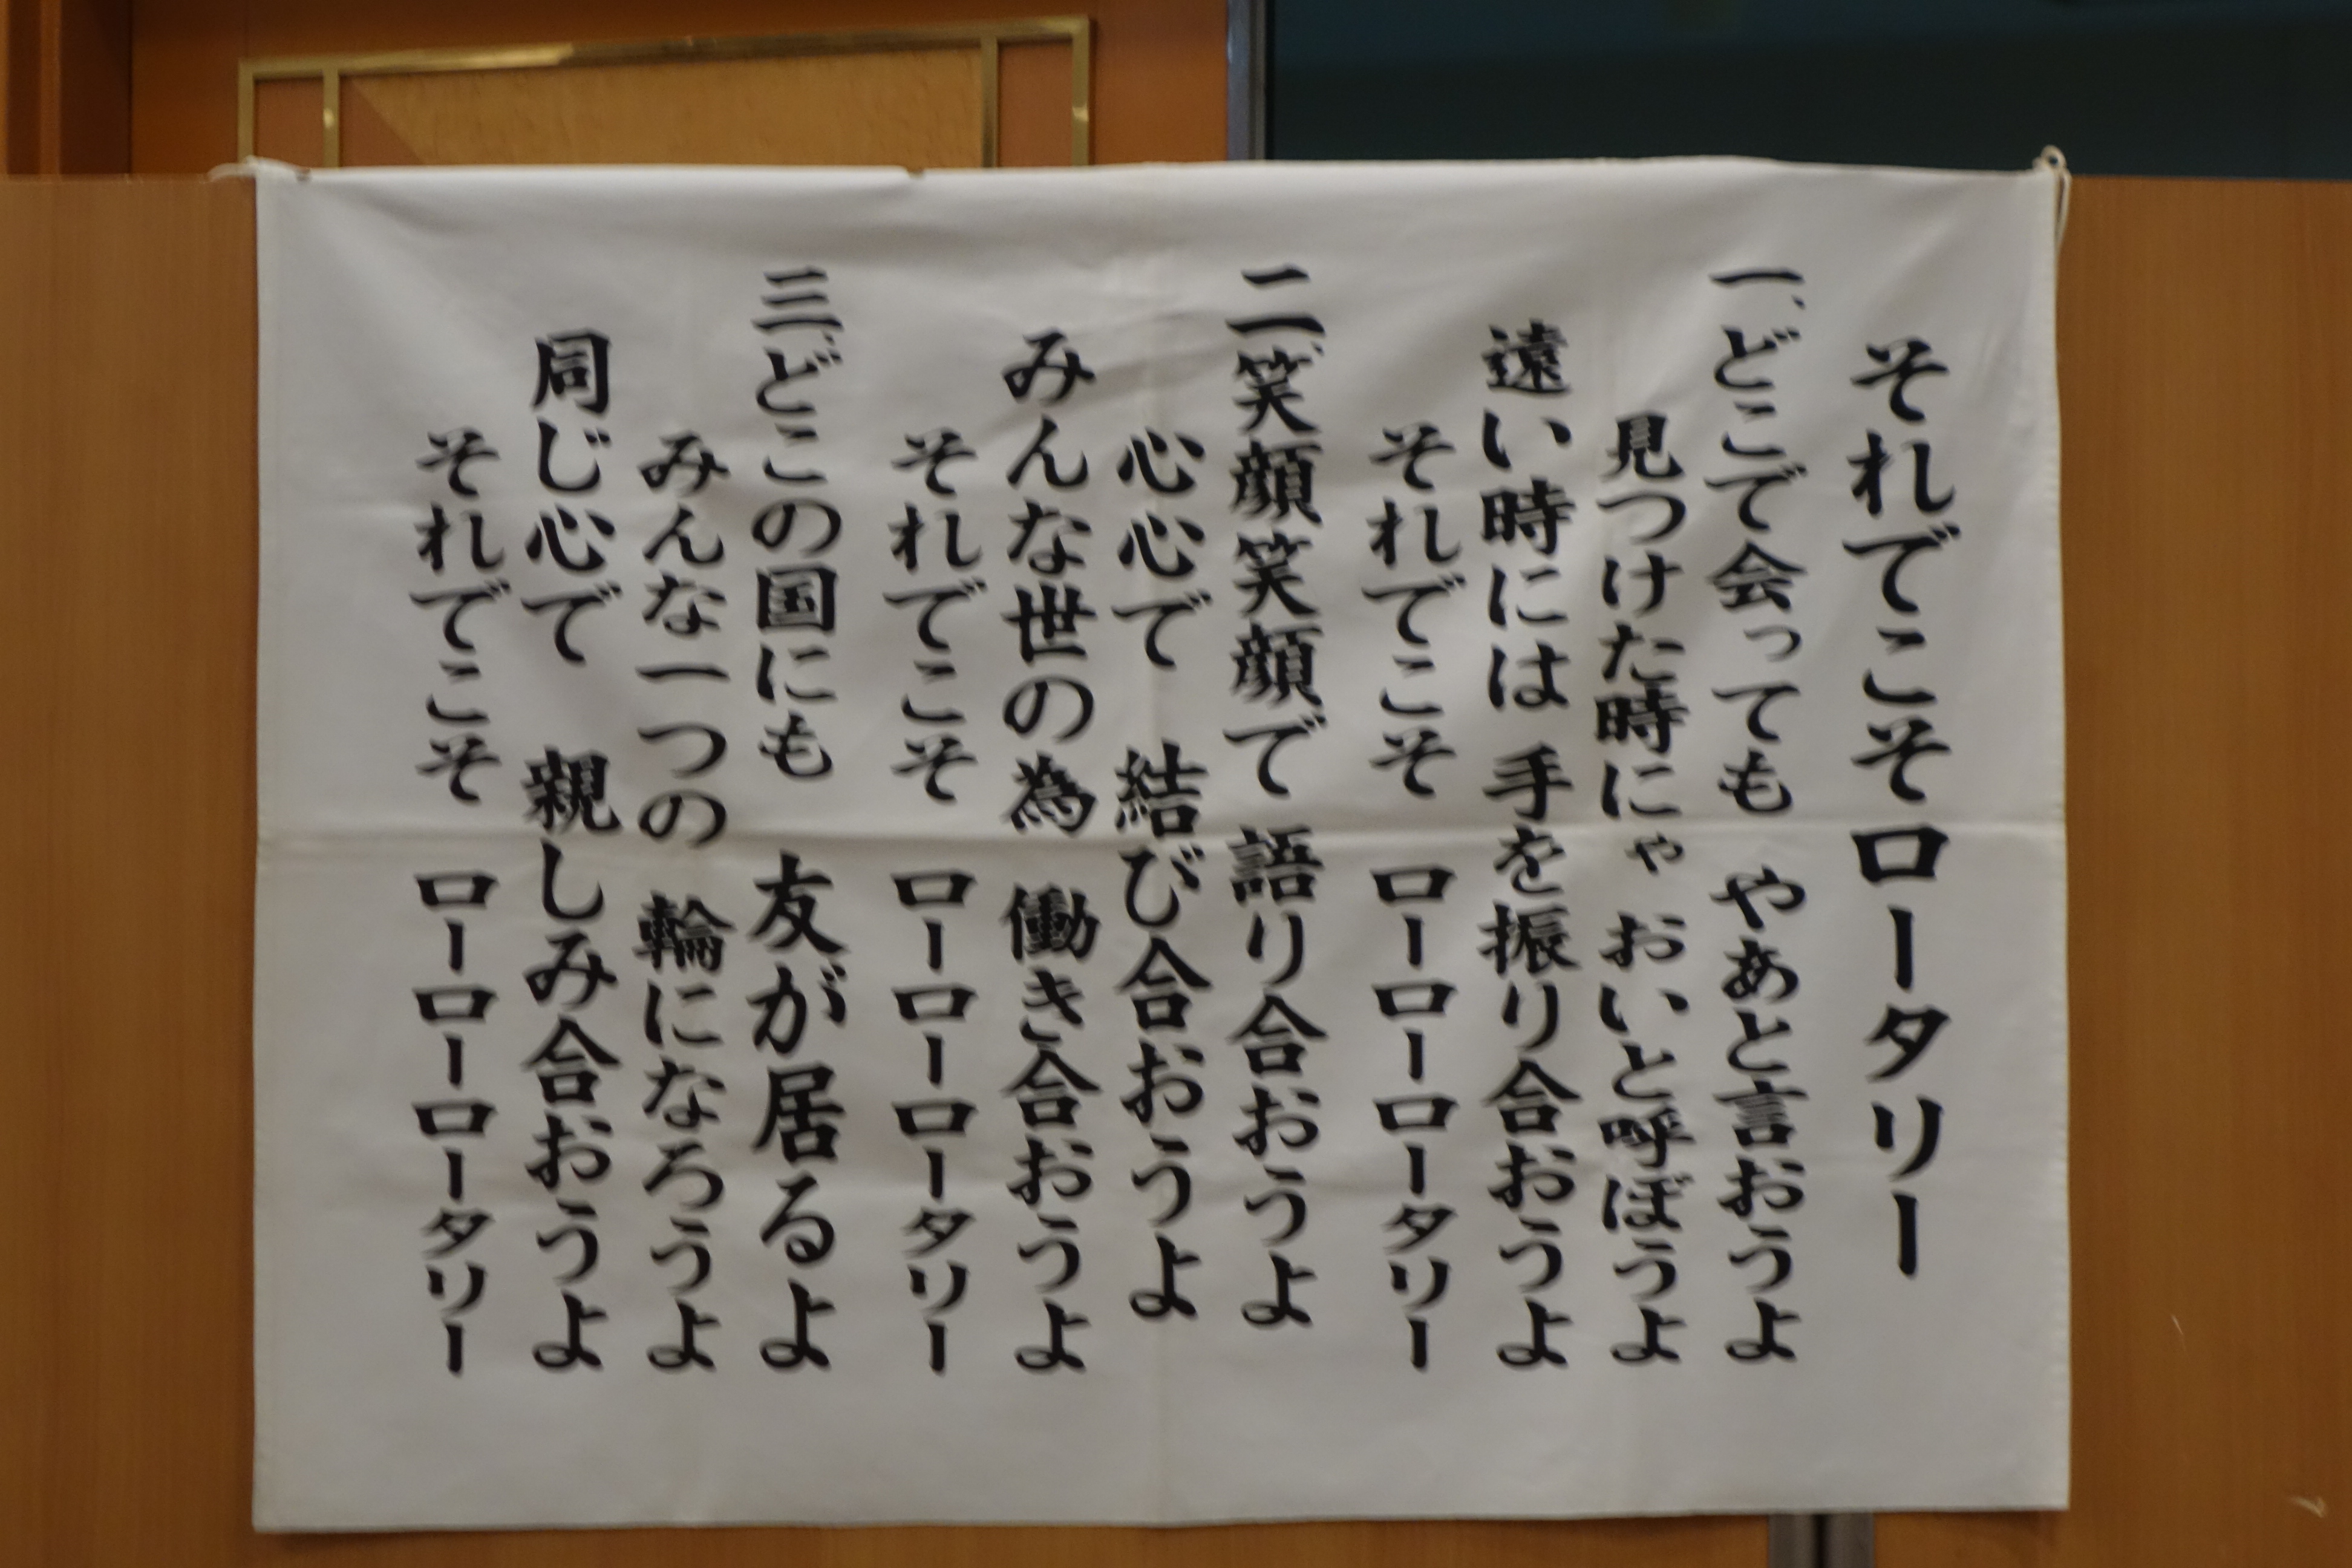 それでこそロータリー
一、どこで会っても やあと言おうよ
見つけた時にゃ おいと呼ぼうよ
遠い時には 手を振り合おうよ
それでこそ ローローロータリー
二、笑顔笑顔で 語り合おうよ
心心で 結び合おうよ
みんな世の為 働き合おうよ
それでこそ ローローロータリー
三、どこの国にも 友が居るよ
みんな一つの 輪になろうよ
同じ心で 親しみ合おうよ
それでこそ ローローロータリー